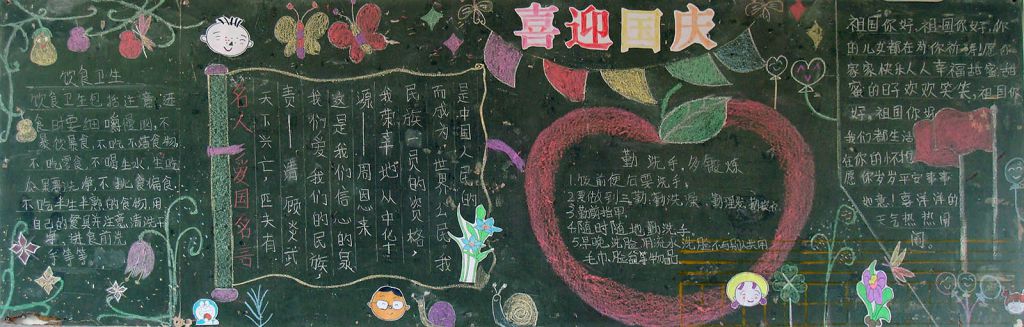 喜迎国庆
饮食卫生
饮食卫生包括注意进
食时要细嚼慢咽,不
暴饮暴食,不吃不洁食物,
不吃零食,不喝生水,生吃
瓜果要洗净,不挑食偏食.
不吃半生半熟的食物,用
自己的餐具并注意清洗干
净,进食前洗
手等等。
名人爱国名言
天下兴亡 匹夫有
责——清 顾炎武
我们爱我们的民族
这是我们信心的泉
源——周恩来
我荣幸地从中华
民族一员的资格,
而成为世界公民,我
是中国人民的
勤洗手,多锻炼
1.饭前便后要洗手.
2.要做到三勤:勤洗澡、勤理发、勤换衣
3.勤剪指甲.
4.随时随地勤洗手.
5.早晚洗脸用流水洗脸不与别人共用
毛巾、脸盆等物品
祖国你好,祖国你好,你
的儿女都在为你祈祷!愿你
家家快乐人人幸福甜蜜甜
蜜的呀欢欢笑笑,祖国你
好,祖国你好
我们都生活
在你的怀抱
愿你岁岁平安事事
如意!喜洋洋的
天气热热闹
闹。